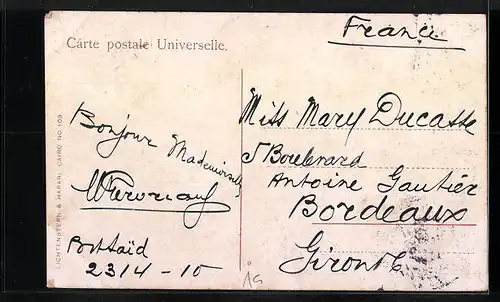 France
Carte postale Universelle.
Bonjour Mademoiselle
Port Saïd
23 / 4 - 10
Miss Mary Ducasse
5 Boulevard
Antoine Gautier
Bordeaux
Gironde
LICHTENSTERN & HARARI, CAIRO NO. 109
AG